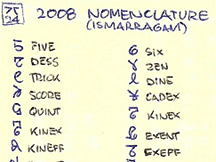 2008 NOMENCLATURE
(ISMARRAGAM)
5 FIVE
DESS
TRICK
SCORE
QUINT
KINEX
KINEFF
6 SIX
ZEN
DINE
CADEX
KINEX
EXENT
EXEFF